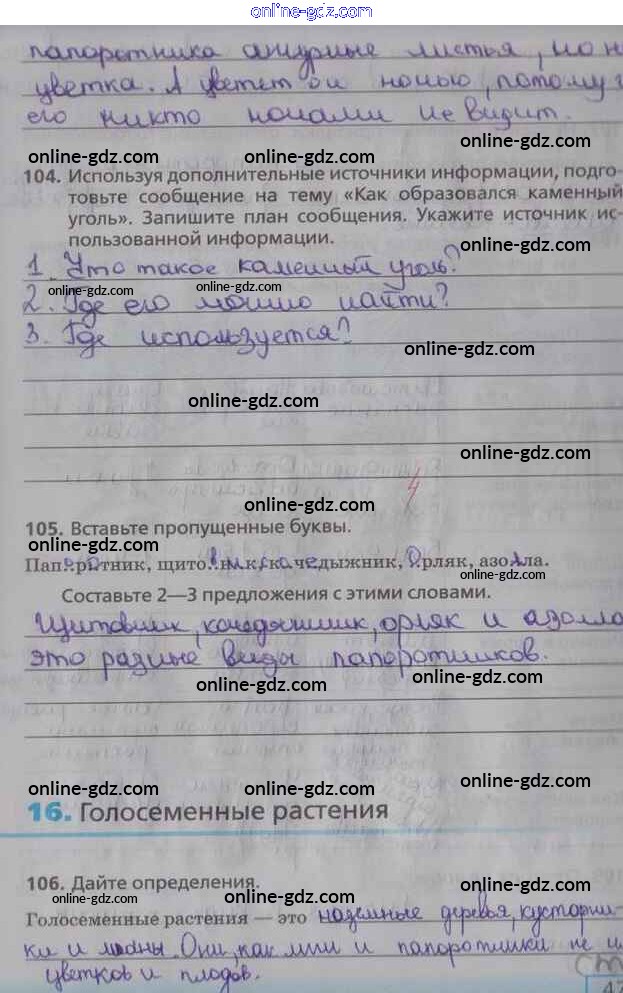 online-gdz.com
папоротника ажурные листья, но н
цветка. А цветет он ночью, потому
его никто ночами не видит.
online-gdz.com online-gdz.com
104. Используя дополнительные источники информации, подго-
товьте сообщение на тему «Как образовался каменный
уголь». Запишите план сообщения. Укажите источник ис-
пользованной информации.
online-gdz.com
1. Что такое каменный уголь?
online-gdz.com online-gdz.com
2. Где его можно найти?
3. Где используется?
online-gdz.com
online-gdz.com
online-gdz.com
4
online-gdz.com
105. Вставьте пропущенные буквы.
Папоротник, щитовник, кочедыжник, орляк, азолла.
online-gdz.com
Составьте 2—3 предложения с этими словами.
Щитовник, кочедыжник, орляк и азолла
это разные виды папоротников.
online-gdz.com online-gdz.com
online-gdz.com online-gdz.com
16. Голосеменные растения
106. Дайте определения.
online-gdz.com online-gdz.com
Голосеменные растения — это наземные деревья, кустарни-
ки и лианы. Они, как мхи и папоротники не и
цветков и плодов.
online-gdz.com
47